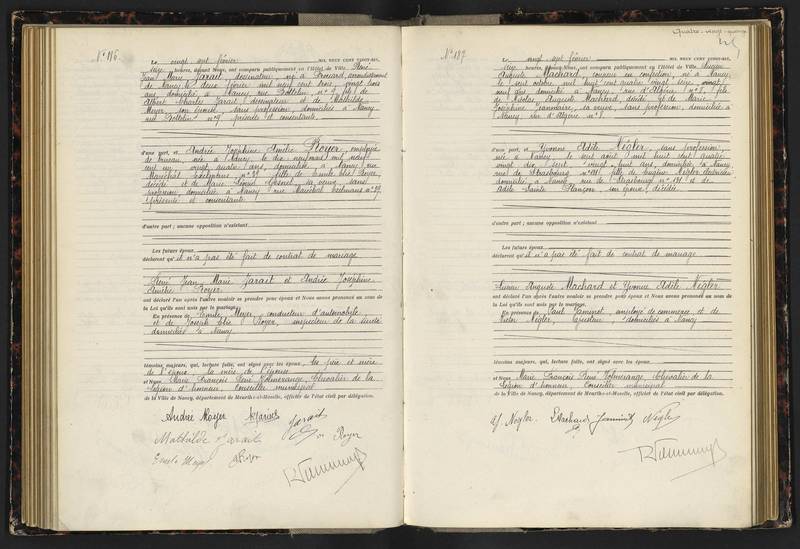 N° 116.
Le vingt sept février MIL NEUF CENT VINGT-SIX,
seize heures, devant Nous, ont comparu publiquement en l'Hôtel de Ville René
Jean Marie Jarait, dessinateur, né à Frouard, arrondissement
de Nancy le deux février mil neuf cent trois, vingt trois
ans, domicilié à Nancy rue n° 9, fils de
Albert Charles Jarait, dessinateur et de Mathilde
Meyer, son épouse, sans profession, domiciliés à Nancy
rue n° 9, présents et consentants.
d'une part, et Andrée Joséphine Amélie Royer, employée
de bureau, née à Nancy le dix neuf mai mil neuf
cent un, vingt quatre ans, domiciliée à Nancy rue
Maréchal n° 39, fille de Emile Elie Royer,
décédé et de Marie sa veuve, sans
profession, domiciliée à Nancy rue Maréchal n° 39,
présente et consentante.
d'autre part ; aucune opposition n'existant
Les futurs époux
déclarent qu'il n'a pas été fait de contrat de mariage
René Jean Marie Jarait et Andrée Joséphine
Amélie Royer
ont déclaré l'un après l'autre vouloir se prendre pour époux et Nous avons prononcé au nom de
la Loi qu'ils sont unis par le mariage.
En présence de Emile Meyer, conducteur d'automobile
et de Joseph Elie Royer, inspecteur de la sûreté
domiciliés à Nancy
témoins majeurs, qui, lecture faite, ont signé avec les époux, les père et mère
de l'époux, la mère de l'épouse
et Nous Marie François René Kolmerange, Chevalier de la
Légion d'honneur, Conseiller municipal
de la Ville de Nancy, département de Meurthe-et-Moselle, officier de l'état civil par délégation.
Andrée Royer Jarait
Mathilde Jarait Royer
Emile Meyer Royer
Quatre-vingt-quatorze
N° 117
Le vingt sept février MIL NEUF CENT VINGT-SIX,
seize heures, devant Nous, ont comparu publiquement en l'Hôtel de Ville Lucien
Auguste Machard, coupeur en confection, né à Nancy
le sept octobre mil huit cent quatre vingt seize, vingt
neuf ans, domicilié à Nancy rue d'Algérie n° 8, fils
de Nicolas Auguste Machard, décédé et de Marie
Joséphine sa veuve, sans profession, domiciliée à
Nancy rue d'Algérie n° 8
d'une part, et Yvonne Adèle Négler, sans profession,
née à Nancy le sept août mil huit cent quatre
vingt dix sept, vingt huit ans, domiciliée à Nancy
rue de Strasbourg n° 131, fille de Eugène Négler
domicilié à Nancy rue de Strasbourg n° 131 et de
Adèle son épouse, décédée
d'autre part ; aucune opposition n'existant
Les futurs époux
déclarent qu'il n'a pas été fait de contrat de mariage
Lucien Auguste Machard et Yvonne Adèle Négler
ont déclaré l'un après l'autre vouloir se prendre pour époux et Nous avons prononcé au nom de
la Loi qu'ils sont unis par le mariage.
En présence de Paul employé de commerce, et de
Victor Négler, domiciliés à Nancy
témoins majeurs, qui, lecture faite, ont signé avec les époux
et Nous Marie François René Kolmerange, Chevalier de la
Légion d'honneur, Conseiller municipal
de la Ville de Nancy, département de Meurthe-et-Moselle, officier de l'état civil par délégation.
Y. Negler Machard Negler